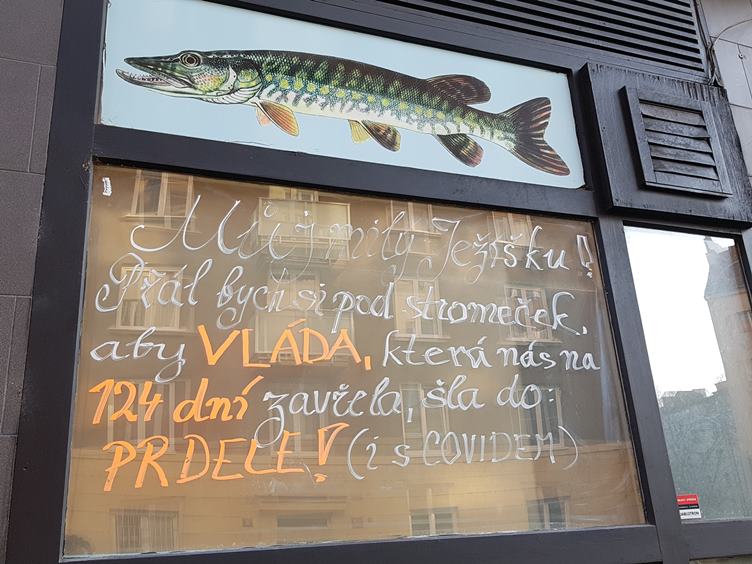 Můj milý Ježíšku!
Přál bych si pod stromeček,
aby VLÁDA, která nás na
124 dní zavřela, šla do:
PRDELE! (i s COVIDEM)
JABLOTRON